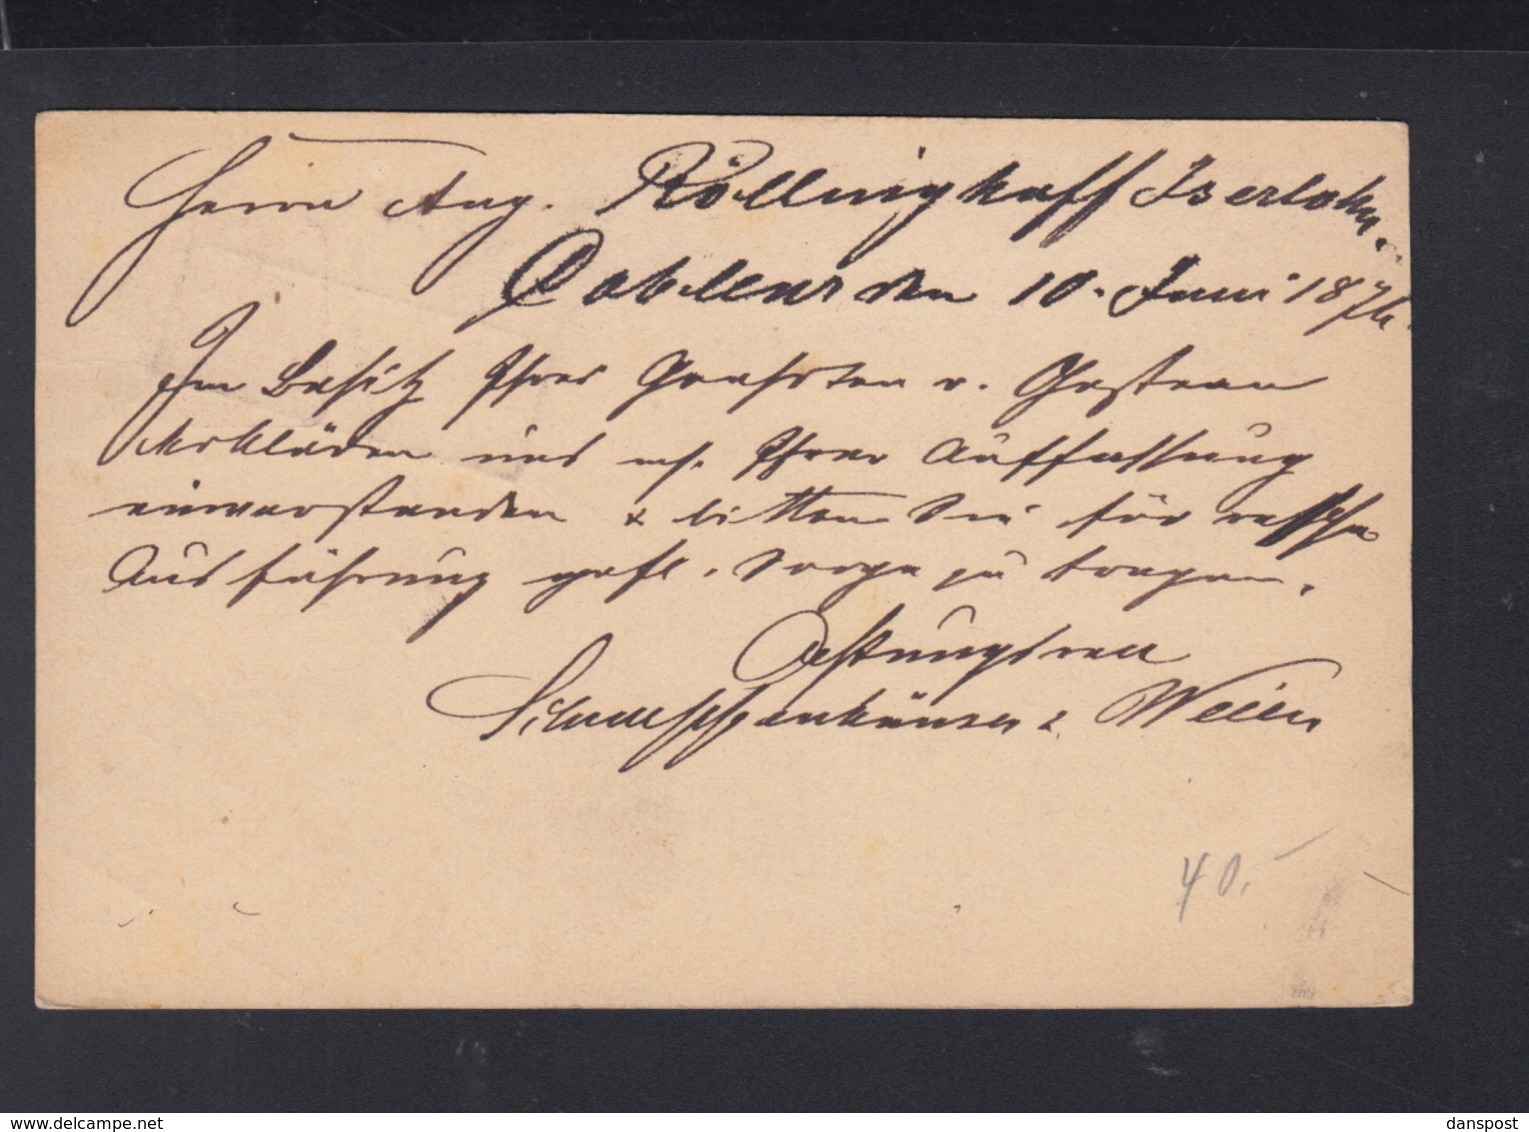 Herrn Aug. Röllinghoff Iserlohn.
Coblenz den 10. Juni 1876.
Im Besitz Ihres Geehrten v. Gestern
erklären uns mit Ihrer Auffassung
einverstanden & bitten Sie für rasche
Ausführung gefl. Sorge zu tragen.
Achtungsvoll
& Weiler
40.-
www.delcampe.net
danspost